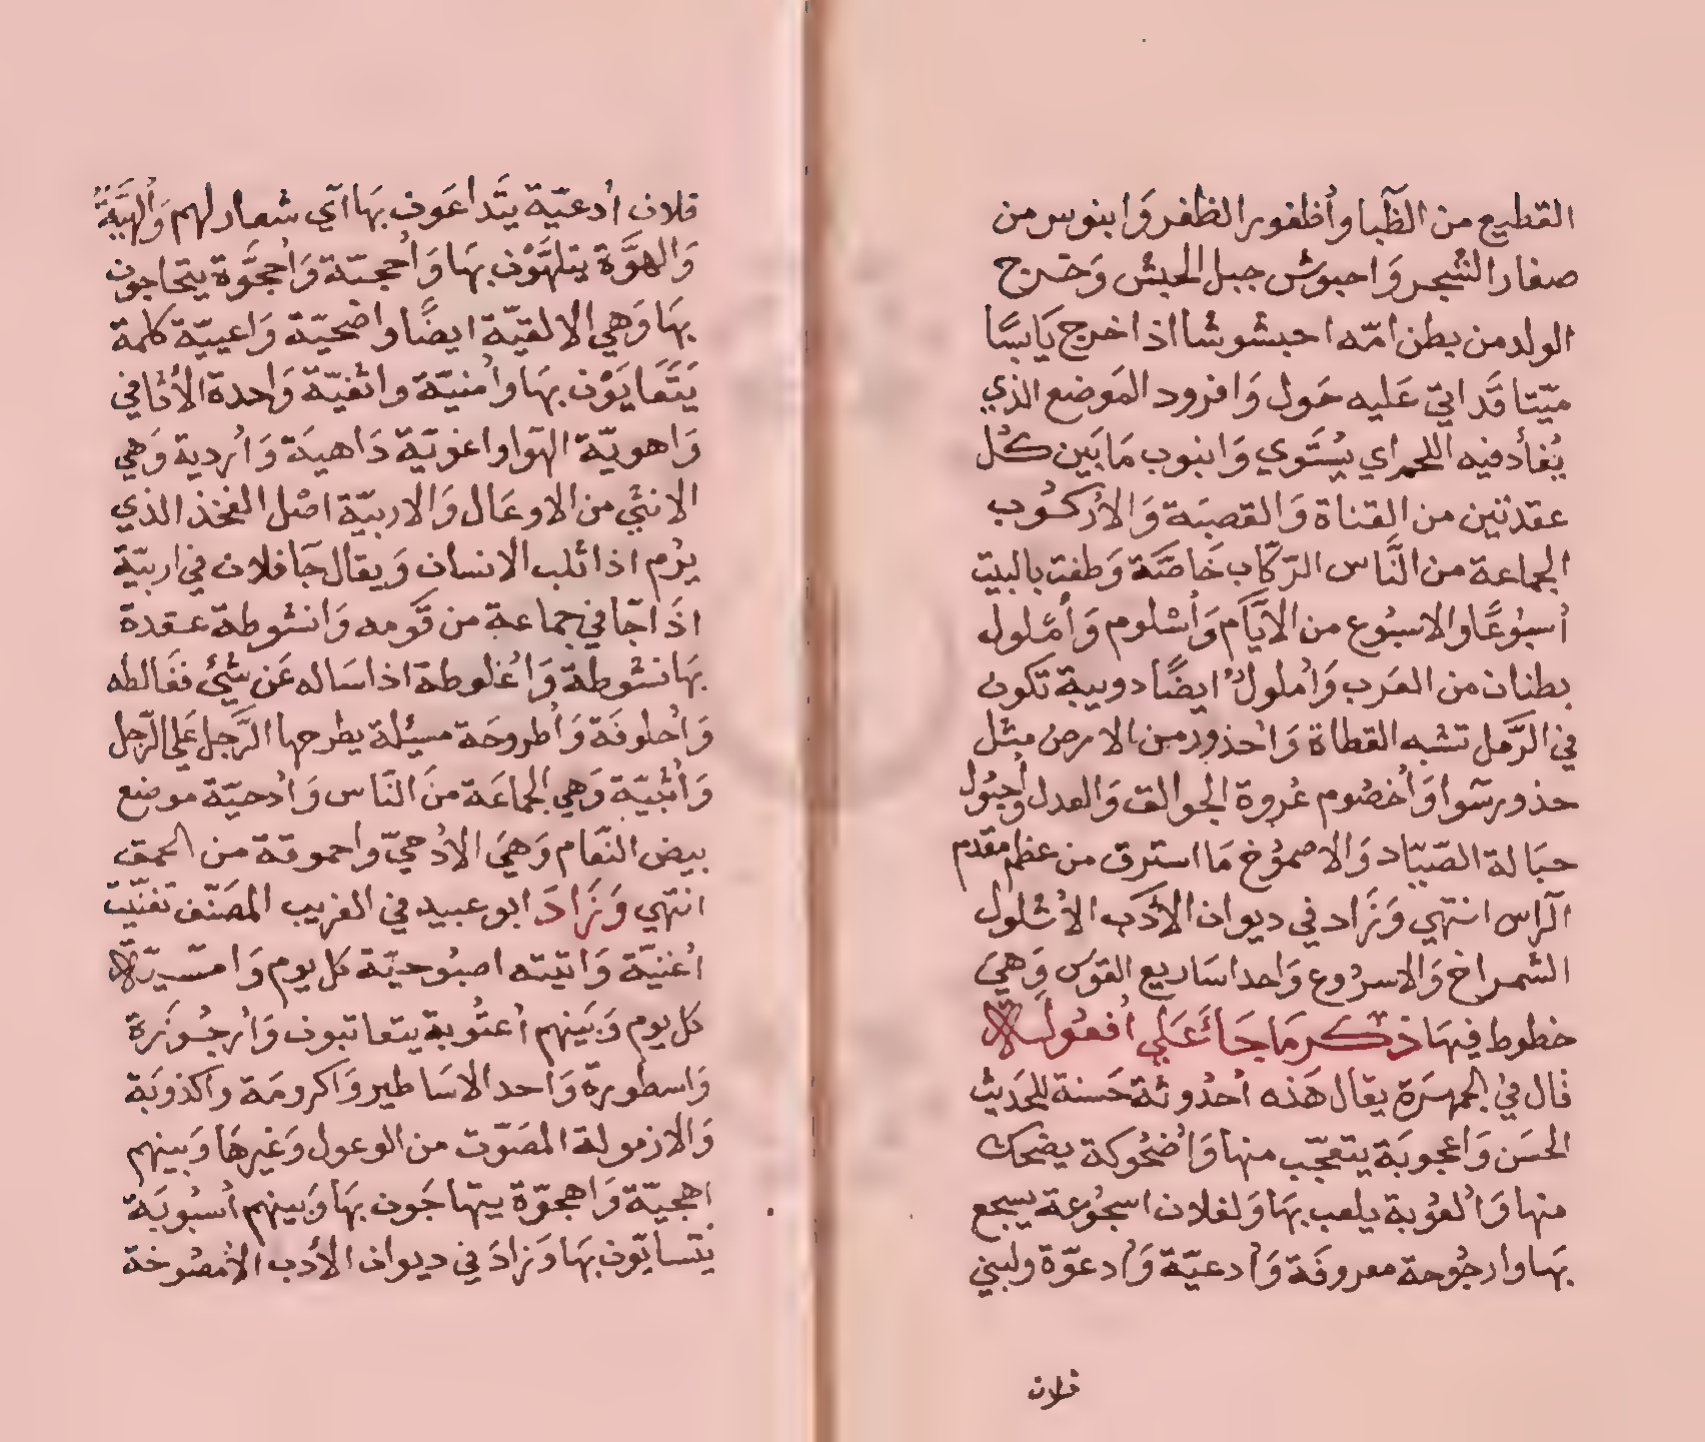 القطيع من الظّبا وأظفور الظفر وَابنوس من
صغار الشجر وَاحبوش جبل الحبش وَخرج
الولد من بطن امّه احبشوشا اذا خرج يَابسًا
ميّتا قَد اتي عَليه حَول وَافرود المَوضع الذي
يُفأد فيه اللحم اي يُشتَوي وَانبوب مَا بَين كُل
عقدتين من القناة وَالقصبَة وَالأركُوب
الجماعة من النَّاس الرّكّاب خَاصَّة وَطفت بالبيت
أسبُوعًا والاسبُوع من الايَّام وَأسْلوم وَأمْلول
بطنان من العَرب وَأملولٌ ايضًا دويبة تكون
في الرَّمل تشبه القطاة وَاُحذور من الارض مثل
حذور سَوا وَأخضُوم عُروة الجوالق وَالعدل وأحبُول
حبَالة الصّيّاد وَالاصمُوخ مَا استرق من عظم مقدم
الرّاس انتهي وَزَاد في ديوان الأدَب الأثلول
الشمراخ وَالاسرُوع وَاحد اسَاريع القوَس وَهيَ
خطوط فيهَا ذكر مَا جَاءَ عَلي أفعُولَة
قال في الجمهرَة يقال هَذه اُحدُوثة حَسنة للحَديث
الحسَن وَاعجوبَة يتعجّب منها وَأضحُوكة يضحك
منها وَاُلعُوبة يلعب بهَا وَلفلان اسجُوعة يسجع
بهَا وارجُوحة معروفَة وَاُدعيّة وَاُدعوّة ولبني
فلان
فلان اُدعيّة يتَداعَون بهَا اَي شعار لهم وَاُلهيَّةٌ
وَالهوَّة يتلهَّوْن بهَا وَاُحجيّة وَاُحجوَّة يتحاجون
بهَا وَهي الالقيّة ايضًا واضحيّة وَاعييّة كلمة
يَتَعَايَوْن بهَا واُمنيّة واثفيّة وَاحدة الأثافي
وَاهويّة الهَوا واغويّة دَاهيَة وَاُرديه وَهي
الانثي من الاوعَال وَالاربيّة اصْل الفخذ الذي
يرُم اذا ثلب الانسان وَيقال جَا فلان في اربيّة
اذَا جَا في جماعة من قَومه وَانشوطة عقدة
بهَا نشوطة وَاُغلوطة اذا سَاله عَن شيْئ فغَالطه
وَاُحلوفَة وَاُطروحَة مسئلة يطرحها الرَّجل عَلي الرّجل
وَاُثبيّة وَهي الجماعَة منَ النّاس وَاُدحيّة موضع
بيض النّعَام وَهيَ الاُدحيّ واحموقة من الحمق
انتهي وَزَادَ ابو عبيد في الغريب المصَنّف تغنّيت
اُغنيّة وَاتيته اصبُوحيّة كل يوم وَامسّيّة
كل يوم وَبَينهم اُعتُوبة يتعاتبون وَاُرجُوزَة
وَاسطورة وَاحد الاسَاطير وَاكرومَة وَاكذوبَة
وَالازمولة المصَوّت من الوعول وَغيرهَا وَبينهم
اهجيّة وَاهجوّة يتهاجَون بهَا وَبينهم اُسبُوبَة
يتسابّون بهَا وَزادَ في ديوان الأدب الاُمصُوخة